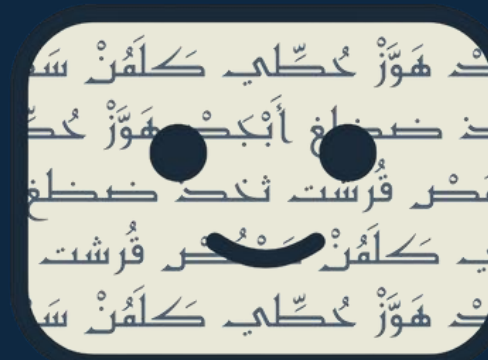 هَوَّزْ حُطِّي كَلَمُنْ
ضضلغ أَبْجَدْ هَوَّزْ
قُرشت ثخذ ضضلغ
كَلَمُنْ قُرشت
هَوَّزْ حُطِّي كَلَمُنْ